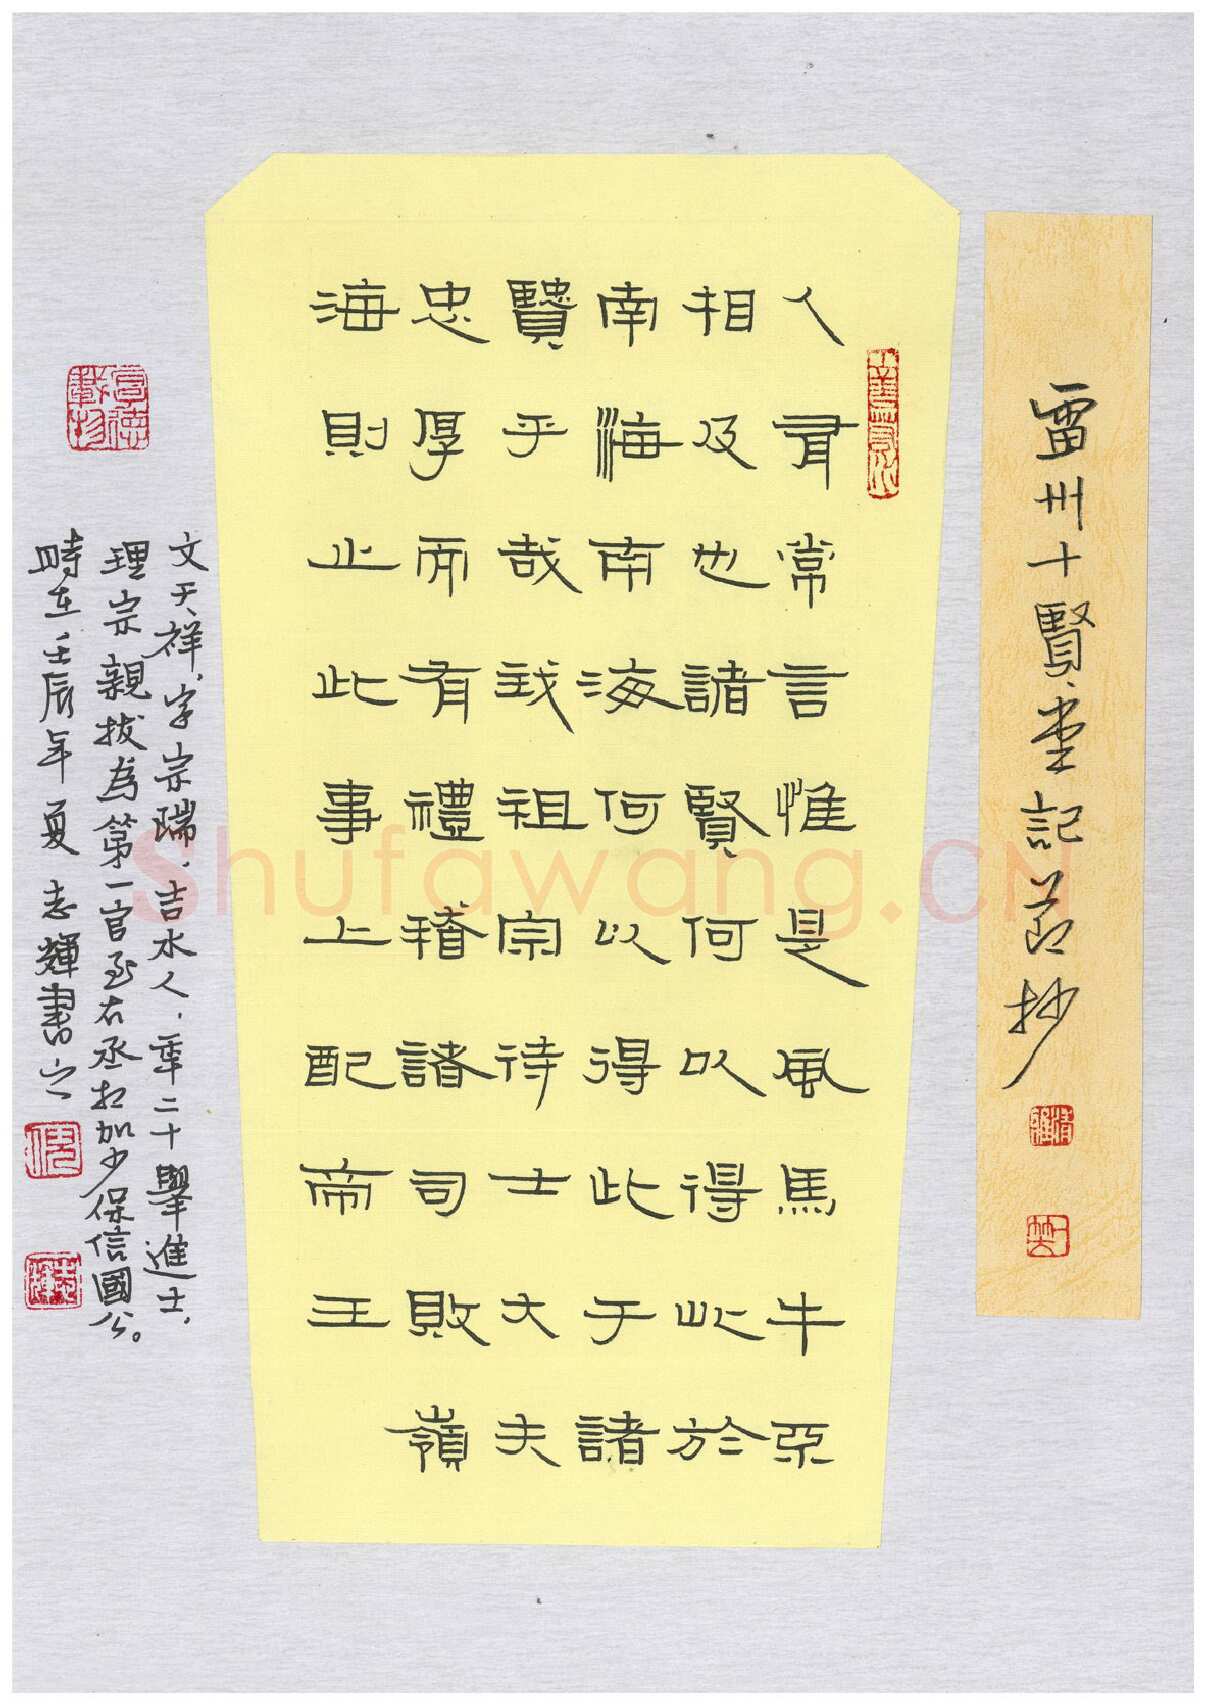 雷州十賢堂記節抄
人有常言惟是風馬牛不
相及也諸賢何以得此於
南海南海何以得此于諸
賢乎哉我祖宗待士大夫
忠厚而有禮稽諸司敗嶺
海則止此事上配帝王
文天祥,字宗瑞,吉水人,年二十舉進士,
理宗親拔為第一官至右丞相加少保信國公。
時在壬辰年夏志輝書之
Shufawang.CN